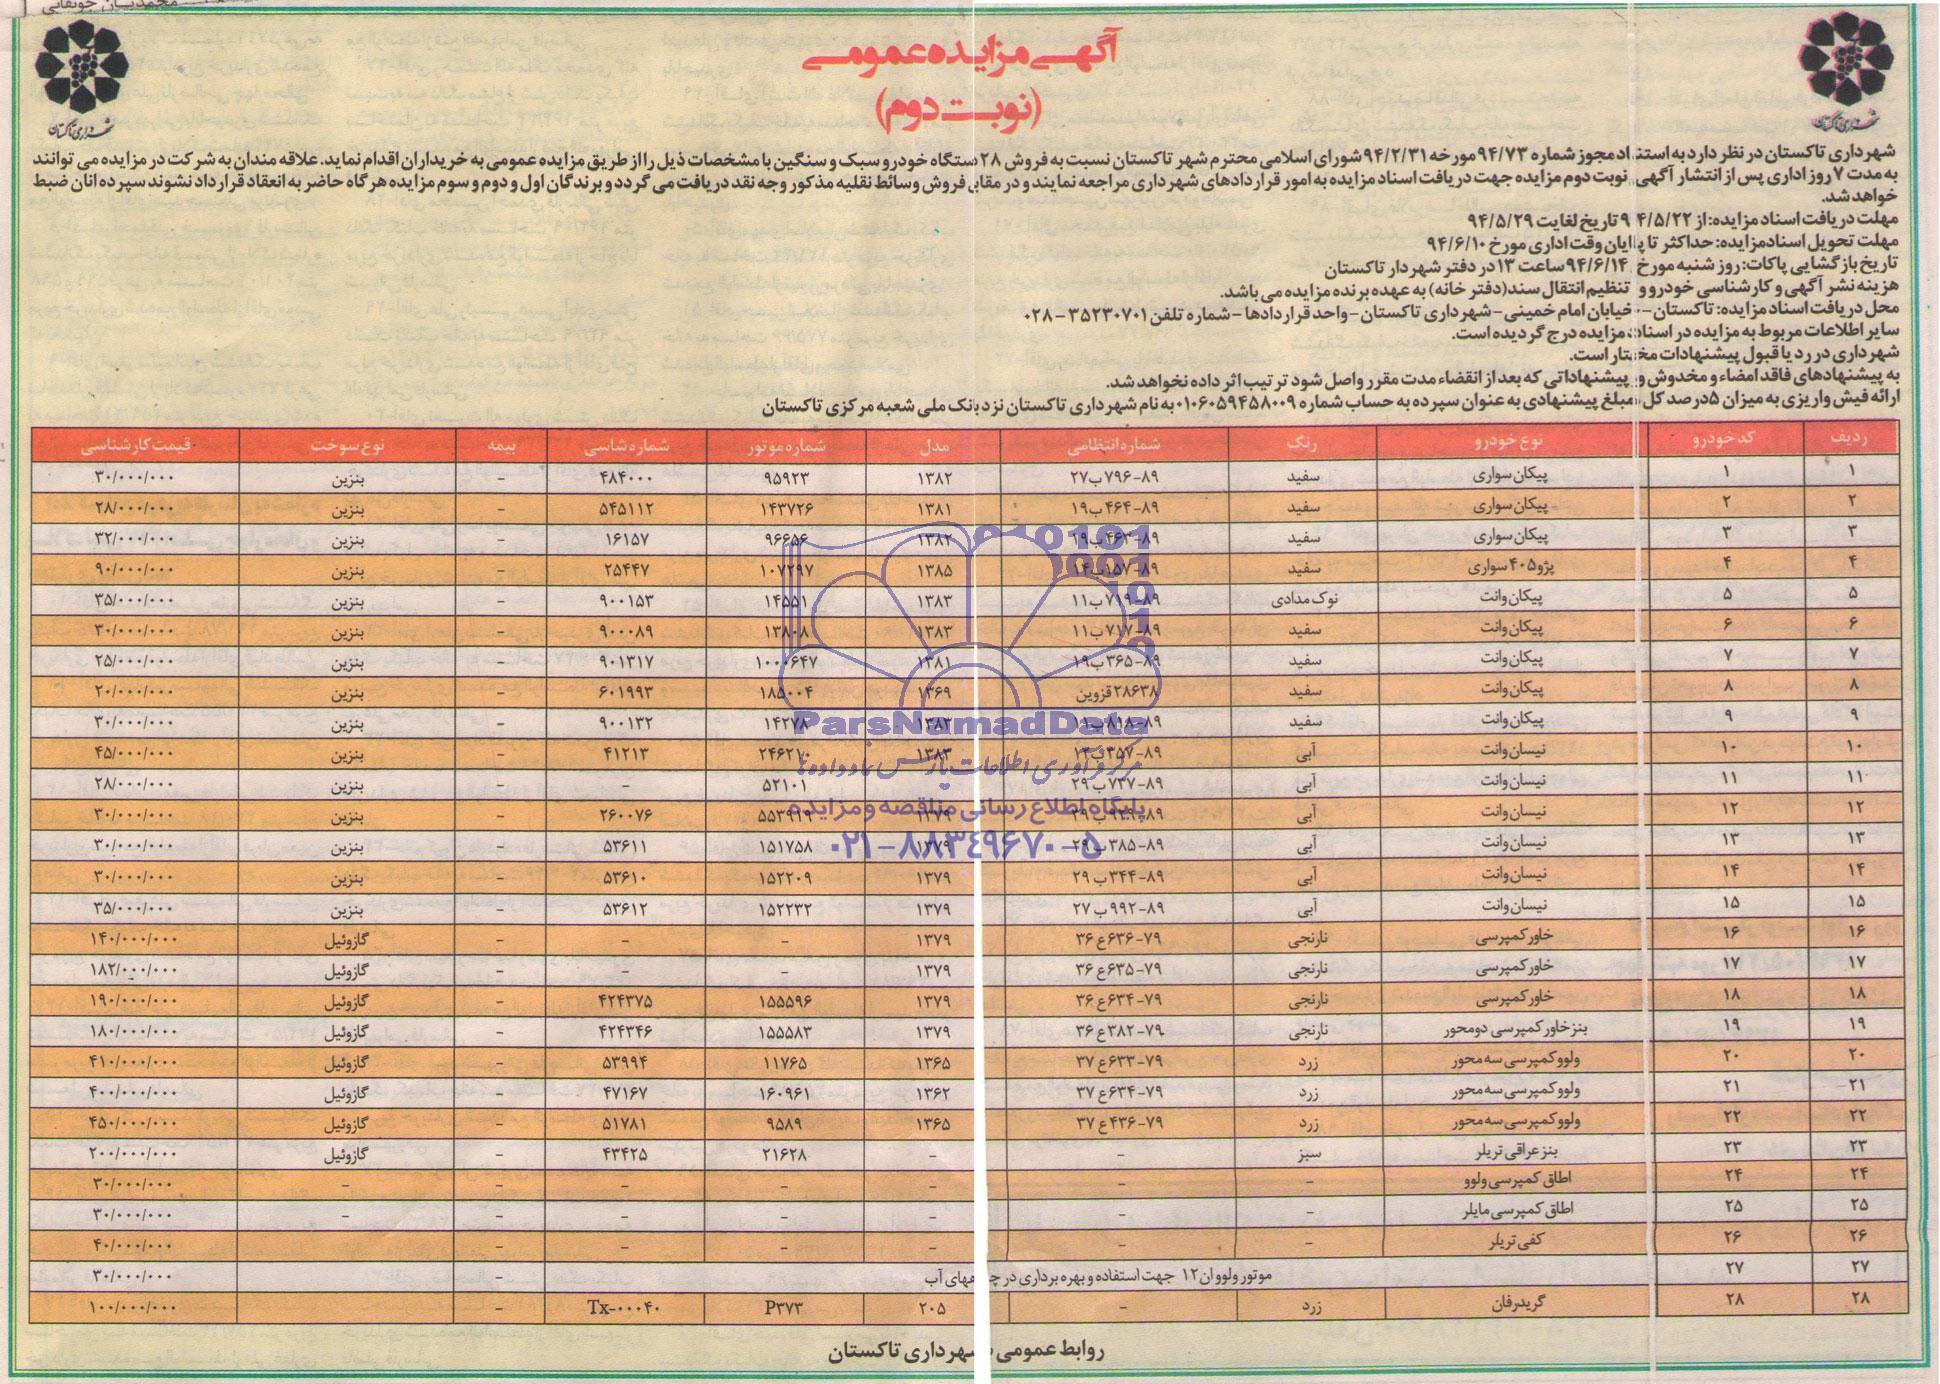 محمدیان جونقانی
شهرداری تاکستان
شهرداری تاکستان
آگهی مزایده عمومی
(نوبت دوم)
شهرداری تاکستان در نظر دارد به استناد مجوز شماره ۹۴/۷۳ مورخه ۹۴/۲/۳۱ شورای اسلامی محترم شهر تاکستان نسبت به فروش ۲۸ دستگاه خودرو سبک و سنگین با مشخصات ذیل را از طریق مزایده عمومی به خریداران اقدام نماید. علاقه مندان به شرکت در مزایده می توانند
به مدت ۷ روز اداری پس از انتشار آگهی نوبت دوم مزایده جهت دریافت اسناد مزایده به امور قراردادهای شهرداری مراجعه نمایند و در مقابل فروش وسائط نقلیه مذکور وجه نقد دریافت می گردد و برندگان اول و دوم و سوم مزایده هر گاه حاضر به انعقاد قرارداد نشوند سپرده انان ضبط
خواهد شد.
مهلت دریافت اسناد مزایده: از ۹۴/۵/۲۲ تاریخ لغایت ۹۴/۵/۲۹
مهلت تحویل اسنادمزایده: حداکثر تا پایان وقت اداری مورخ ۹۴/۶/۱۰
تاریخ بازگشایی پاکات: روز شنبه مورخ ۹۴/۶/۱۴ ساعت ۱۳ در دفتر شهردار تاکستان
هزینه نشر آگهی و کارشناسی خودرو و تنظیم انتقال سند (دفتر خانه) به عهده برنده مزایده می باشد.
محل دریافت اسناد مزایده: تاکستان - خیابان امام خمینی - شهرداری تاکستان - واحد قراردادها - شماره تلفن ۳۵۲۳۰۷۰۱ - ۰۲۸
سایر اطلاعات مربوط به مزایده در اسناد مزایده درج گردیده است.
شهرداری در رد یا قبول پیشنهادات مختار است.
به پیشنهادهای فاقد امضاء و مخدوش و پیشنهاداتی که بعد از انقضاء مدت مقرر واصل شود ترتیب اثر داده نخواهد شد.
ارائه فیش واریزی به میزان ۵ درصد کل مبلغ پیشنهادی به عنوان سپرده به حساب شماره ۰۱۰۶۰۵۹۴۵۸۰۰۹ به نام شهرداری تاکستان نزد بانک ملی شعبه مرکزی تاکستان
ردیف کد خودرو نوع خودرو رنگ شماره انتظامی مدل شماره موتور شماره شاسی بیمه نوع سوخت قیمت کارشناسی
۱ ۱ پیکان سواری سفید ۸۹-۷۹۶ب۲۷ ۱۳۸۲ ۹۵۹۲۳ ۴۸۴۰۰۰ - بنزین ۳۰/۰۰۰/۰۰۰
۲ ۲ پیکان سواری سفید ۸۹-۴۶۴ب۱۹ ۱۳۸۱ ۱۴۳۷۲۶ ۵۴۵۱۱۲ - بنزین ۲۸/۰۰۰/۰۰۰
۳ ۳ پیکان سواری سفید ۸۹-۴۶۳ب۱۹ ۱۳۸۲ ۹۶۶۵۶ ۱۶۱۵۷ - بنزین ۳۲/۰۰۰/۰۰۰
۴ ۴ پژو ۴۰۵ سواری سفید ۸۹-۱۵۷ب۱۴ ۱۳۸۵ ۱۰۷۲۹۷ ۲۵۴۴۷ - بنزین ۹۰/۰۰۰/۰۰۰
۵ ۵ پیکان وانت نوک مدادی ۸۹-۷۱۹ب۱۱ ۱۳۸۳ ۱۴۵۵۱ ۹۰۰۱۵۳ - بنزین ۳۵/۰۰۰/۰۰۰
۶ ۶ پیکان وانت سفید ۸۹-۷۱۷ب۱۱ ۱۳۸۳ ۱۳۸۰۸ ۹۰۰۰۸۹ - بنزین ۳۰/۰۰۰/۰۰۰
۷ ۷ پیکان وانت سفید ۸۹-۳۶۵ب۱۹ ۱۳۸۱ ۱۰۰۰۶۴۷ ۹۰۱۳۱۷ - بنزین ۲۵/۰۰۰/۰۰۰
۸ ۸ پیکان وانت سفید ۲۸۶۳۸ قزوین ۱۳۶۹ ۱۸۵۰۰۴ ۶۰۱۹۹۳ - بنزین ۲۰/۰۰۰/۰۰۰
۹ ۹ پیکان وانت سفید ۸۹-۸۱۸ب۱۱ ۱۳۸۳ ۱۴۲۷۸ ۹۰۰۱۳۲ - بنزین ۳۰/۰۰۰/۰۰۰
۱۰ ۱۰ نیسان وانت آبی ۸۹-۳۵۷ب۱۳ ۱۳۸۳ ۲۴۶۲۱۰ ۴۱۲۱۳ - بنزین ۴۵/۰۰۰/۰۰۰
۱۱ ۱۱ نیسان وانت آبی ۸۹-۷۳۷ب۲۹ ۵۲۱۰۱ - - بنزین ۲۸/۰۰۰/۰۰۰
۱۲ ۱۲ نیسان وانت آبی ۱۳۷۹ ۵۵۳۹۱۹ ۲۶۰۰۷۶ - بنزین ۳۰/۰۰۰/۰۰۰
۱۳ ۱۳ نیسان وانت آبی ۸۹-۳۸۵ب۲۹ ۱۳۷۹ ۱۵۱۷۵۸ ۵۳۶۱۱ - بنزین ۳۰/۰۰۰/۰۰۰
۱۴ ۱۴ نیسان وانت آبی ۸۹-۳۴۴ب۲۹ ۱۳۷۹ ۱۵۲۲۰۹ ۵۳۶۱۰ - بنزین ۳۰/۰۰۰/۰۰۰
۱۵ ۱۵ نیسان وانت آبی ۸۹-۹۹۲ب۲۷ ۱۳۷۹ ۱۵۲۲۳۲ ۵۳۶۱۲ - بنزین ۳۵/۰۰۰/۰۰۰
۱۶ ۱۶ خاور کمپرسی نارنجی ۷۹-۶۳۶ع۳۶ ۱۳۷۹ - - - گازوئیل ۱۴۰/۰۰۰/۰۰۰
۱۷ ۱۷ خاور کمپرسی نارنجی ۷۹-۶۳۵ع۳۶ ۱۳۷۹ - - - گازوئیل ۱۸۲/۰۰۰/۰۰۰
۱۸ ۱۸ خاور کمپرسی نارنجی ۷۹-۶۳۴ع۳۶ ۱۳۷۹ ۱۵۵۵۹۶ ۴۲۴۳۷۵ - گازوئیل ۱۹۰/۰۰۰/۰۰۰
۱۹ ۱۹ بنز خاور کمپرسی دو محور نارنجی ۷۹-۳۸۲ع۳۶ ۱۳۷۹ ۱۵۵۵۸۳ ۴۲۴۳۴۶ - گازوئیل ۱۸۰/۰۰۰/۰۰۰
۲۰ ۲۰ ولوو کمپرسی سه محور زرد ۷۹-۶۳۳ع۳۷ ۱۳۶۵ ۱۱۷۶۵ ۵۳۹۹۴ - گازوئیل ۴۱۰/۰۰۰/۰۰۰
۲۱ ۲۱ ولوو کمپرسی سه محور زرد ۷۹-۶۳۴ع۳۷ ۱۳۶۲ ۱۶۰۹۶۱ ۴۷۱۶۷ - گازوئیل ۴۰۰/۰۰۰/۰۰۰
۲۲ ۲۲ ولوو کمپرسی سه محور زرد ۷۹-۴۳۶ع۳۷ ۱۳۶۵ ۹۵۸۹ ۵۱۷۸۱ - گازوئیل ۴۵۰/۰۰۰/۰۰۰
۲۳ ۲۳ بنز عراقی تریلر سبز - - ۲۱۶۲۸ ۴۳۴۲۵ - گازوئیل ۲۰۰/۰۰۰/۰۰۰
۲۴ ۲۴ اطاق کمپرسی ولوو - - - - - - - ۳۰/۰۰۰/۰۰۰
۲۵ ۲۵ اطاق کمپرسی مایلر - - - - - - - ۳۰/۰۰۰/۰۰۰
۲۶ ۲۶ کفی تریلر - - - - - - ۴۰/۰۰۰/۰۰۰
۲۷ ۲۷ موتور ولوو ان ۱۲ جهت استفاده و بهره برداری در چاههای آب - ۳۰/۰۰۰/۰۰۰
۲۸ ۲۸ گریدر فان زرد - ۲۰۵ P۳۷۳ Tx-۰۰۰۴۰ - ۱۰۰/۰۰۰/۰۰۰
روابط عمومی شهرداری تاکستان
010101
0001
ParsNamadData
مرکز فرآوری اطلاعات پارس نماد داده ها
پایگاه اطلاع رسانی مناقصه و مزایده
۰۲۱-۸۸۳۴۹۶۷۰-۵